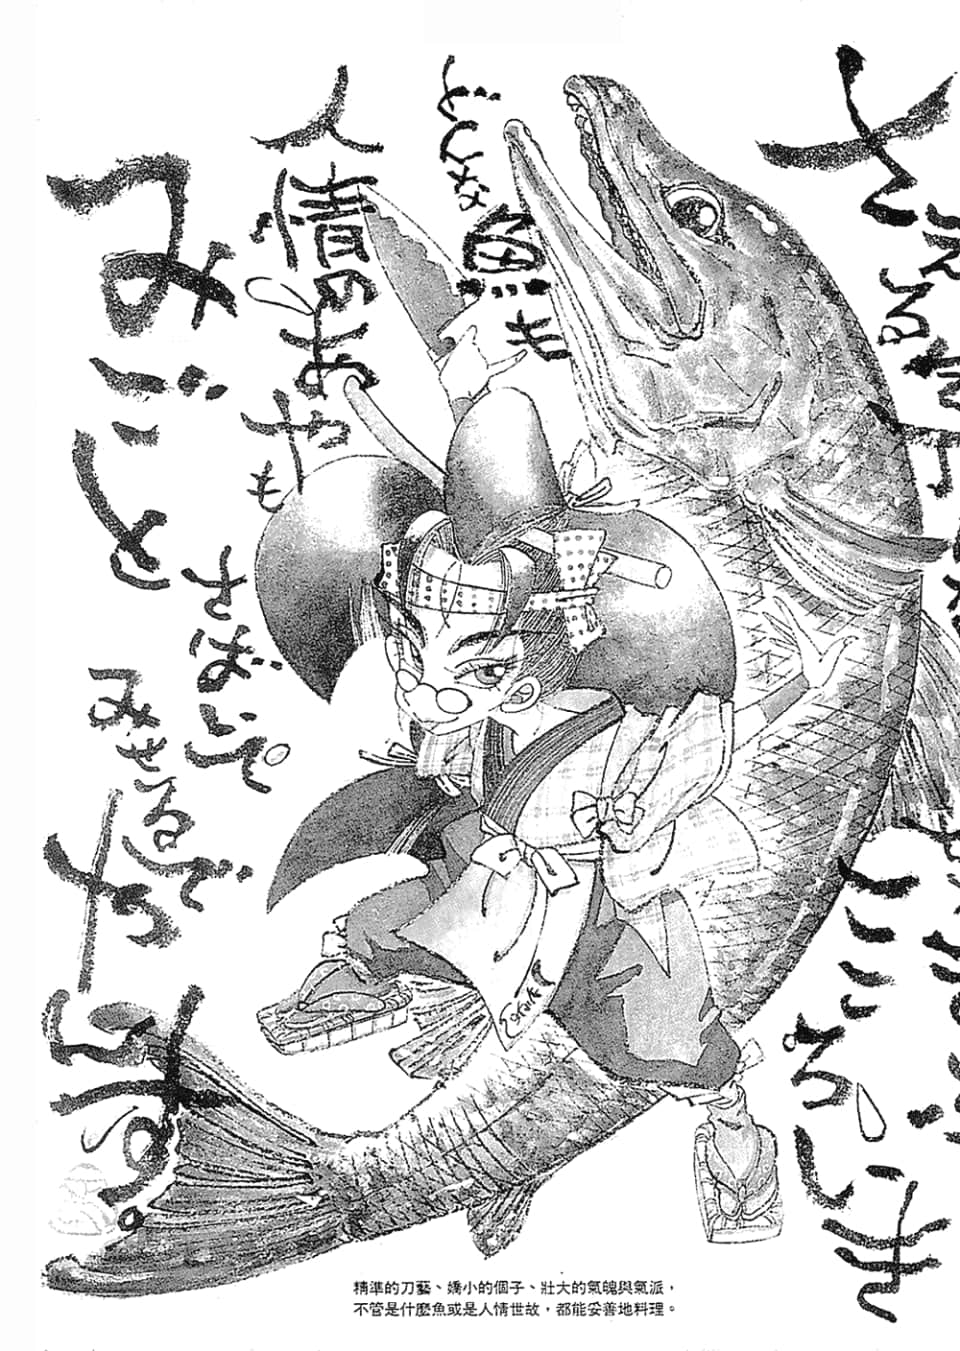 さえる
こころいき
どんな魚も
人情のあやも
みごと
さばいて
みせるで
やんす。
精準的刀藝、嬌小的個子、壯大的氣魄與氣派，
不管是什麼魚或是人情世故，都能妥善地料理。